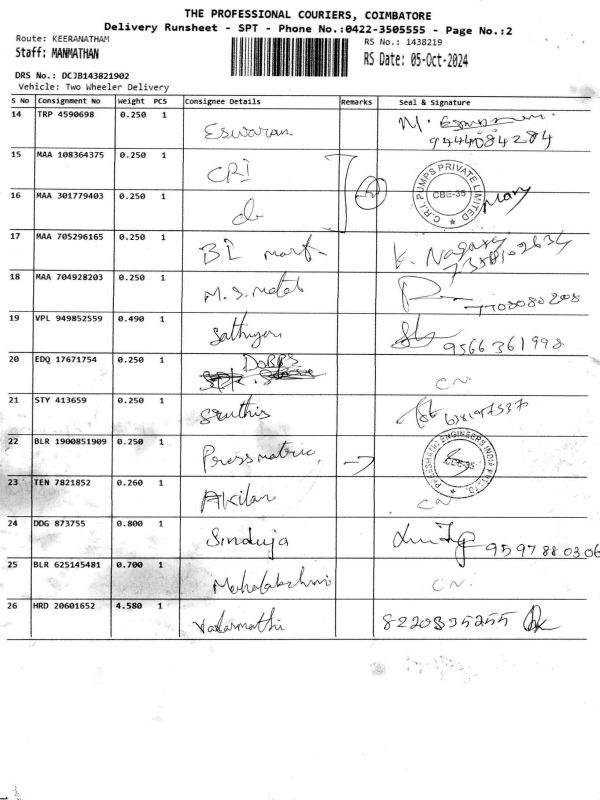 THE PROFESSIONAL COURIERS, COIMBATORE
Delivery Runsheet - SPT - Phone No.:0422-3505555 - Page No.:2
Route: KEERANATHAM
RS No.: 1438219
Staff: MANMATHAN
RS Date: 05-Oct-2024
DRS No.: DCJB143821902
Vehicle: Two Wheeler Delivery
S No Consignment No Weight PCS Consignee Details Remarks Seal & Signature
14 TRP 4590698 0.250 1 Eswaran
9444084284
15 MAA 108364375 0.250 1 CRI
C.R.I. PUMPS PRIVATE LIMITED
CBE-35
16 MAA 301779403 0.250 1 do
17 MAA 705296165 0.250 1 BL mart
18 MAA 704928203 0.250 1 M.S. metal
19 VPL 949852559 0.490 1 Sathiyan 9566361998
20 EDQ 17671754 0.250 1 CN
21 STY 413659 0.250 1 Sruthis
22 BLR 1900851909 0.250 1 Pressmatric
PRESSMATIC ENGINEERS INDIA PVT. LTD.
CBE-35
23 TEN 7821852 0.260 1 Akilan CN
24 DDG 873755 0.800 1 Sinduja 9597880306
25 BLR 625145481 0.700 1 Mahalakshmi CN.
26 HRD 20601652 4.580 1 Valarmathi 8220835255